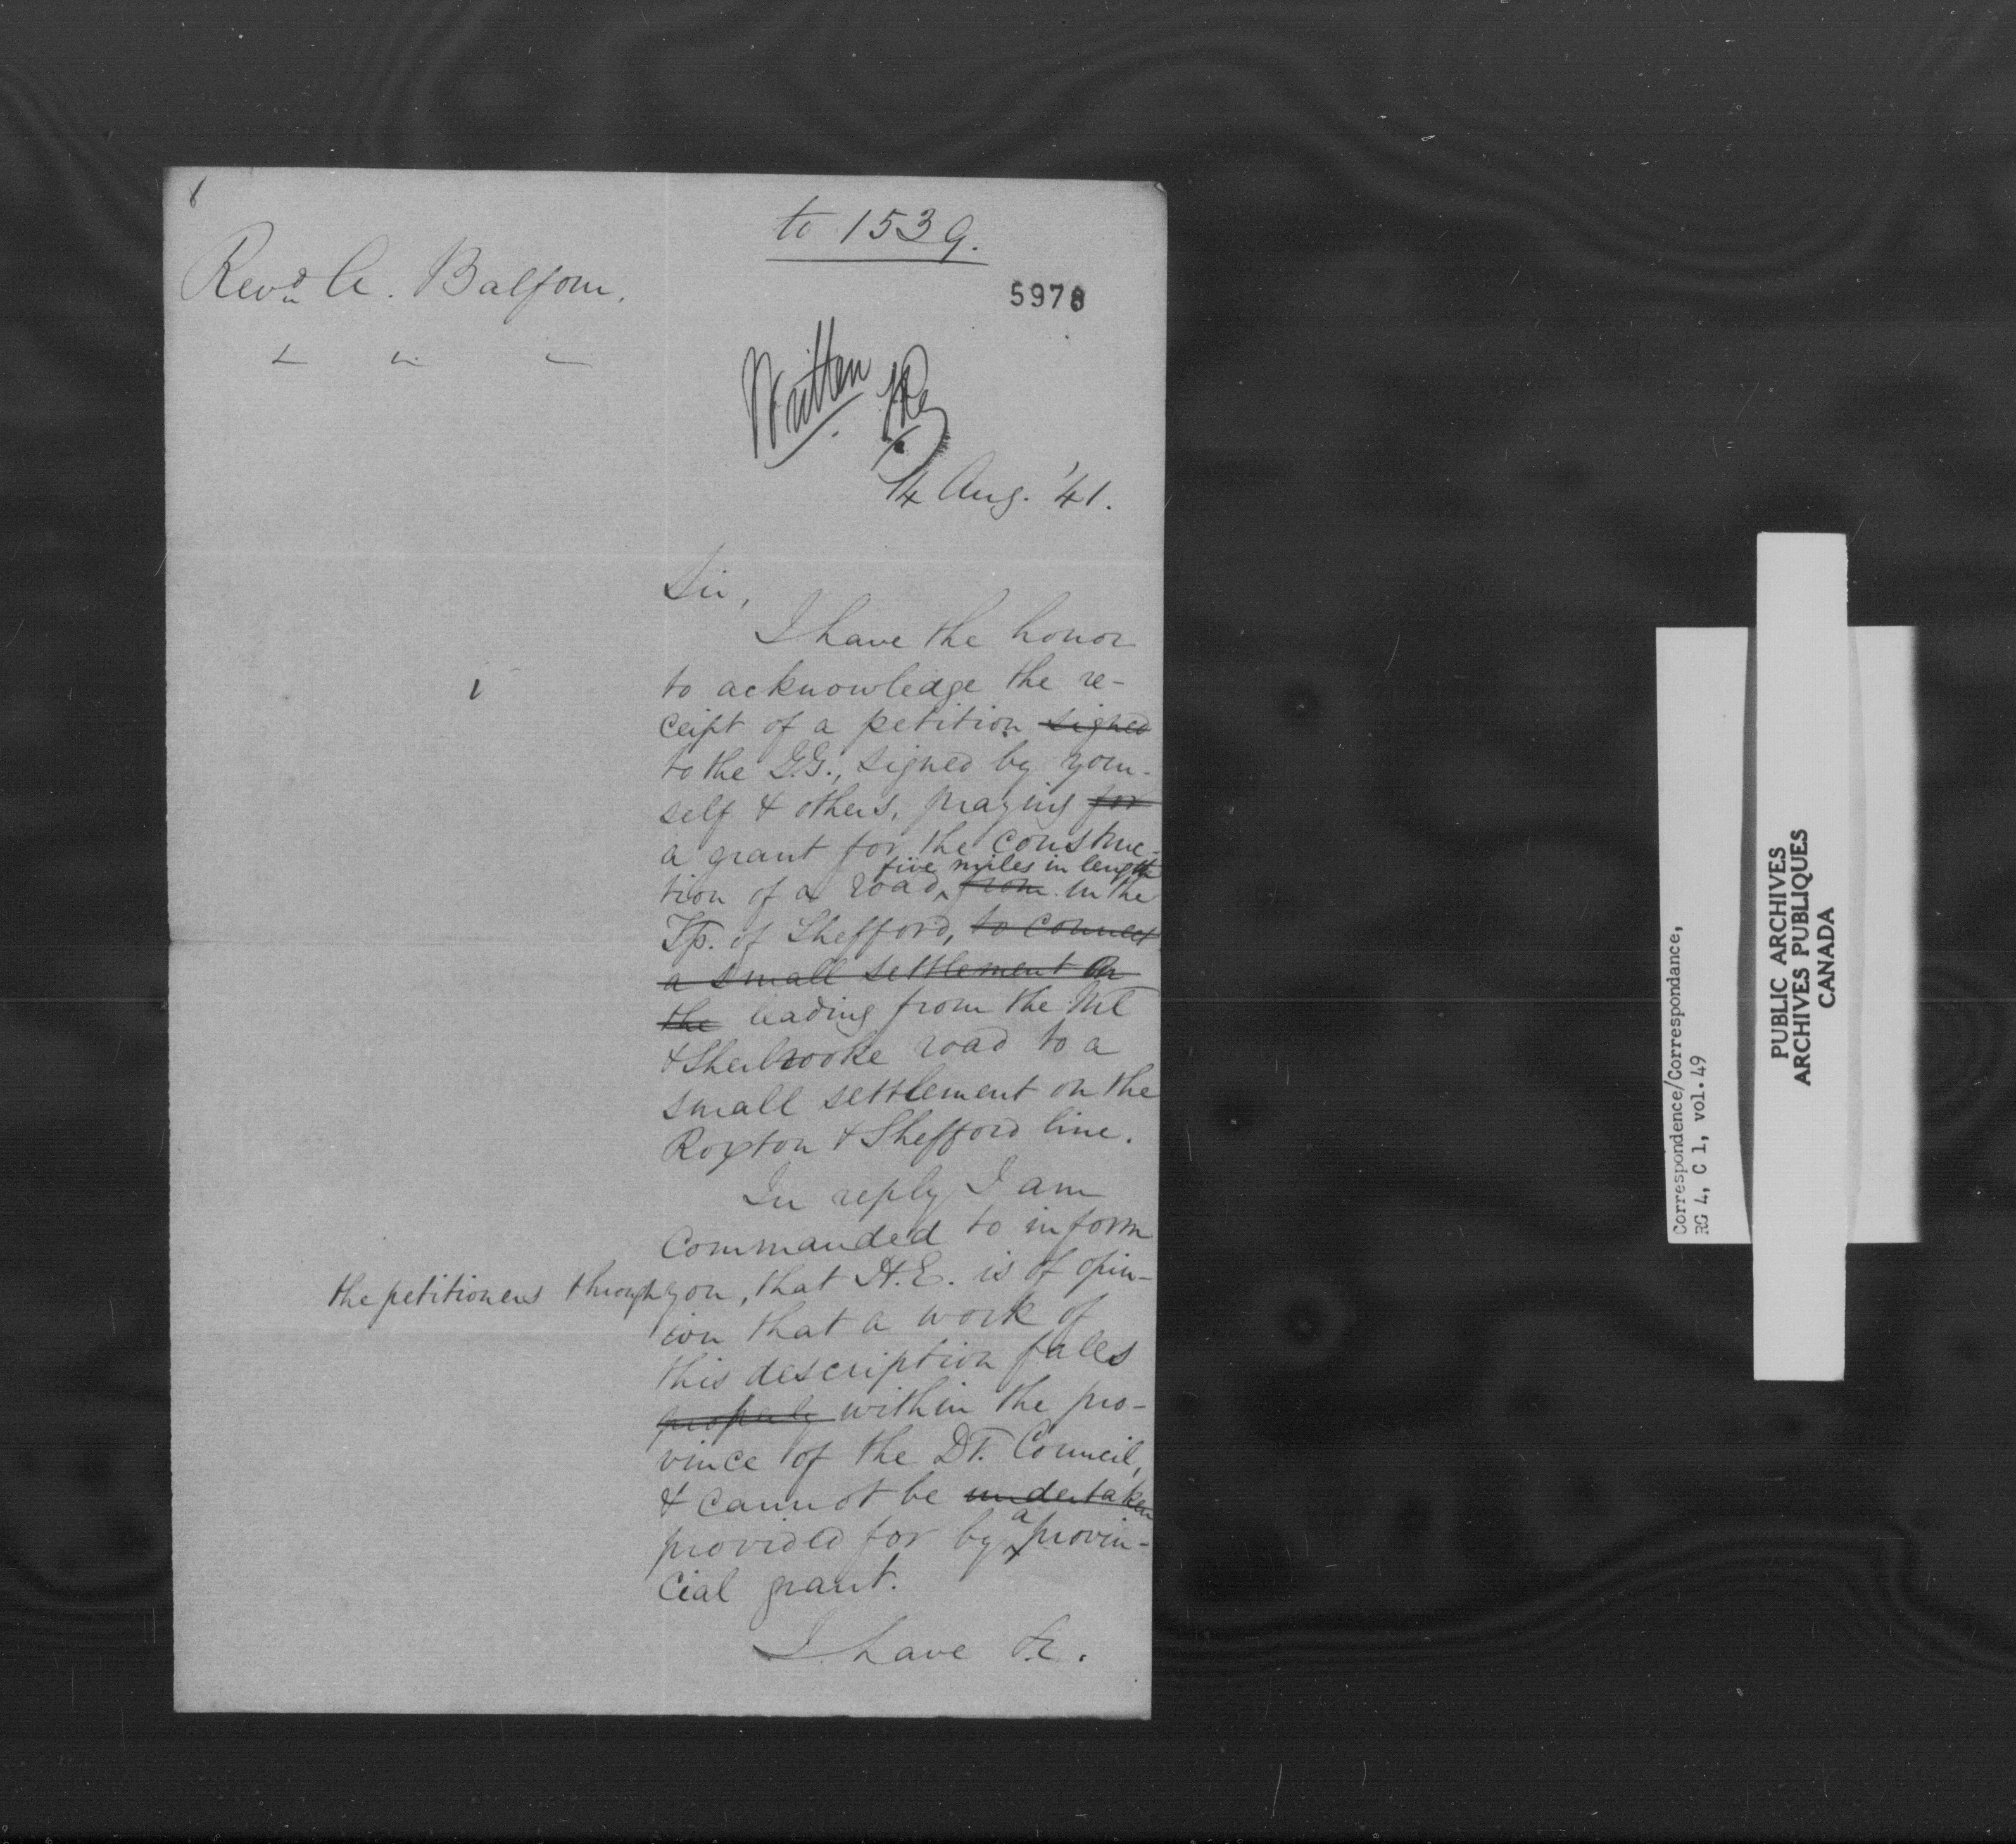 to 1539.
Revd A. Balfour.
5978
Written
14 Aug. '41.
Sir,
I have the honor
to acknowledge the re-
ceipt of a petition signed
to the G.G., signed by your-
self & others, praying for
a grant for the construc-
five miles in length
tion of a road, from in the
Tp. of Shefford, to connect
a small settlement on
the leading from the Mtl
& Sherbrooke road to a
small settlement on the
Roxton & Shefford line.
In reply I am
Commanded to inform
the petitioners through you, that H.E. is of opin-
ion that a work of
this description falls
properly within the pro-
vince of the DT. Council,
& cannot be undertaken
a
provided for by provin-
cial grant.
I have &c.
Correspondence/Correspondance,
RG 4, C 1, vol.49
PUBLIC ARCHIVES
ARCHIVES PUBLIQUES
CANADA